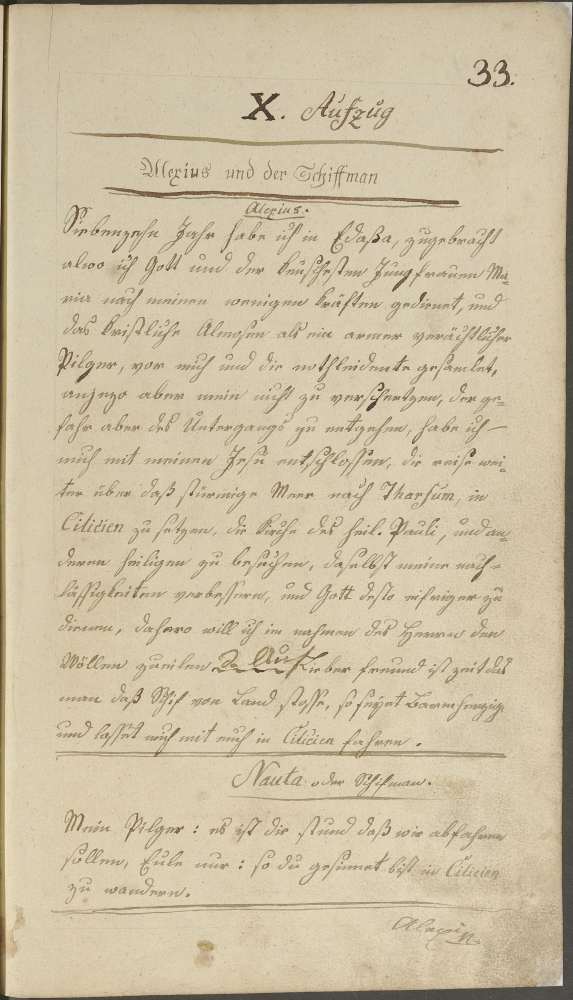 33.
X. Aufzug
Alexius und der Schiffman
Alexius.
Siebenzehn Jahr habe ich in Edaßa, zugebracht
alwo ich Gott und der keuschesten Jungfrauen Ma-
ria nach meinen wenigen kräften gedienet, und
das kristliche Almosen als ein armer verächtlicher
Pilger, vor mich und die nothleidente gesamlet,
anjezo aber mein nicht zu verschertzen, der ge-
fahr aber des Untergangs zu entgehen, habe ich
mich mit meinen Jesu entschlossen, die reise wei-
ter über daß stürmige Meer nach Tharsum, in
Cilicien zu setzen, die Kirche des heil. Pauli, und an-
deren heiligen zu besuchen, daselbst meine nach-
lässigkeiten verbessern, und Gott desto eifriger zu
dienen, dahero will ich im nahmen des Herrn den
Wöllen zueilen Lieber freund ist zeit das
man daß Schif von Land stosse, so seyet Barmherzig
und lasset mich mit euch in Cilicien fahren.
Nauta oder Schifman.
Mein Pilger: es ist die stund daß wir abfahren
sollen, Eule nur: so du gesinnet bist in Cilicien
zu wandern.